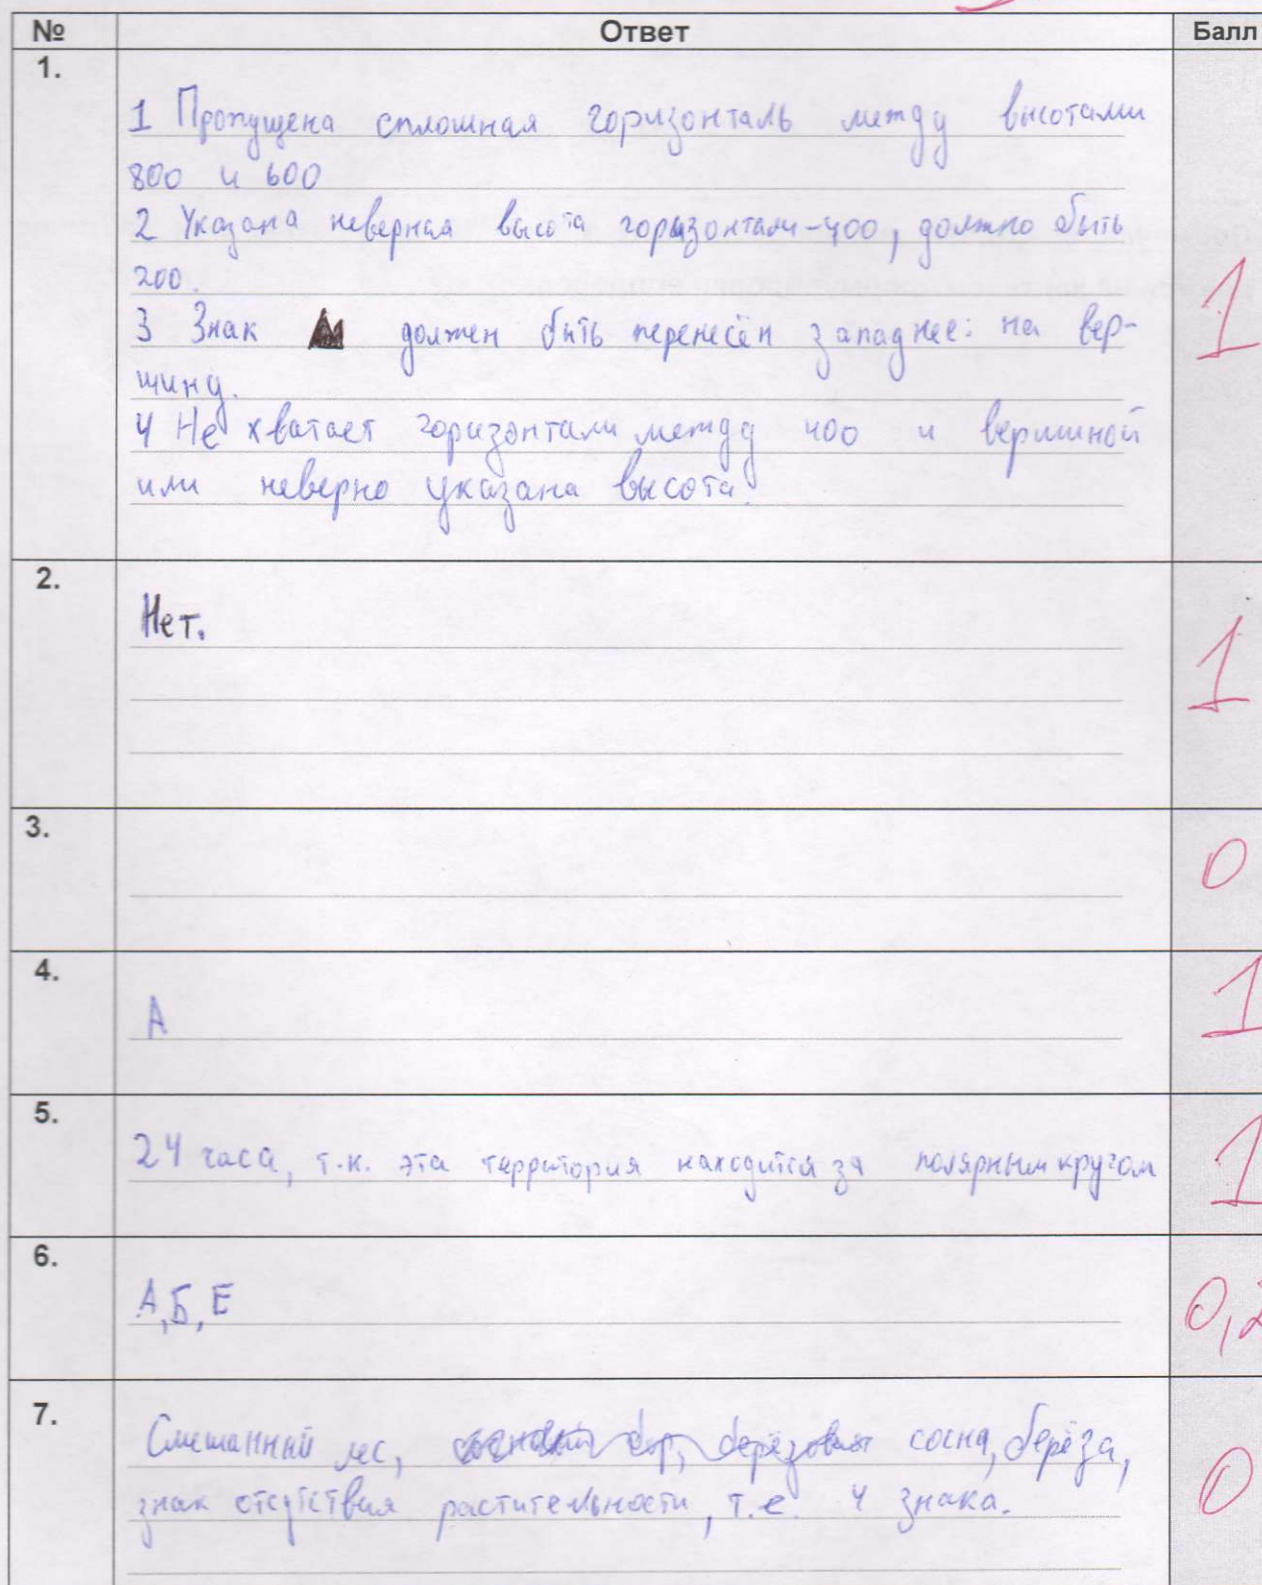 № Ответ Балл
1.
1 Пропущена сплошная горизонталь между высотами
800 и 600
2 Указана неверная высота горизонтали-400, должно быть
200.
3 Знак должен быть перенесён западнее: на вер-
шину.
4 Не хватает горизонтали между 400 и вершиной
или неверно указана высота.
1
2.
Нет.
1
3.
0
4.
А
1
5.
24 часа, т.к. эта территория находится за полярным кругом
1
6.
А, Б, Е
7.
Смешанный лес, сосна, берёза,
знак отсутствия растительности, т.е. 4 знака.
0